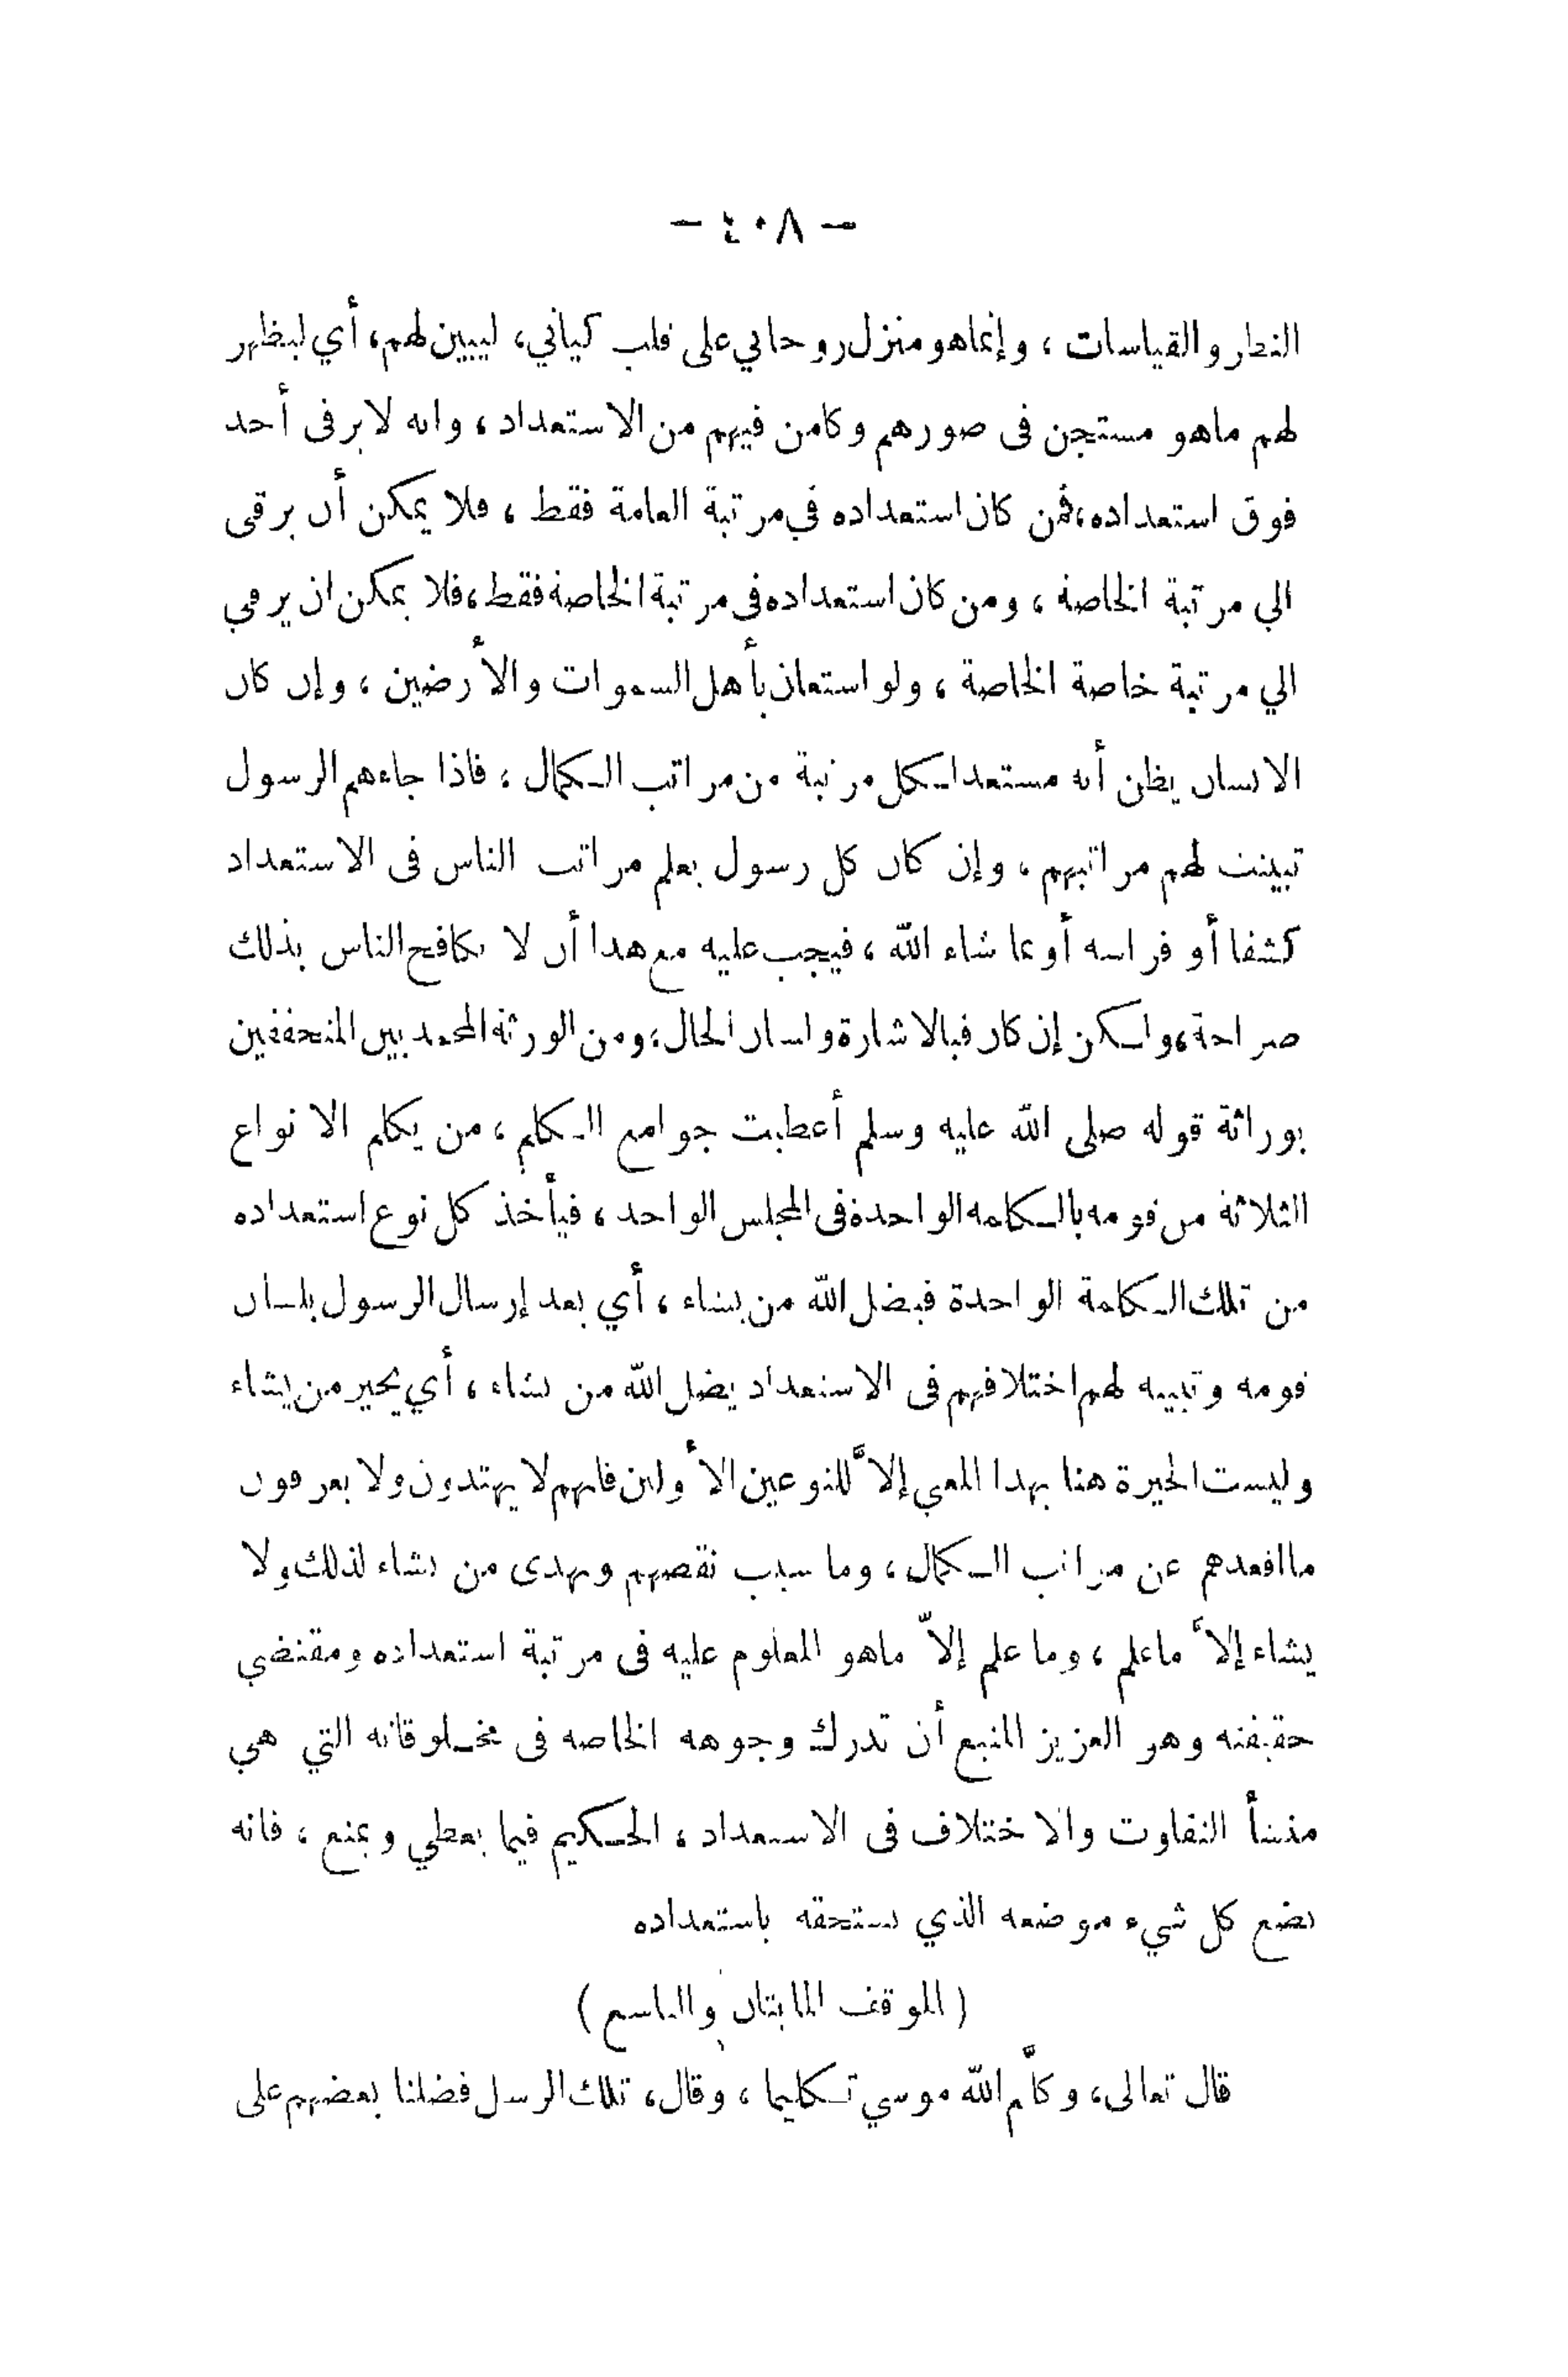 — ٤٠٨ —
النظر والقياسات ، وإنما هو منزل روحاني على قلب كياني، ليبين لهم، أي ليظهر
لهم ماهو مستجن فى صورهم وكامن فيهم من الاستعداد ، وانه لايرقى أحد
فوق استعداده، فمن كان استعداده في مرتبة العامة فقط ، فلا يمكن أن يرقى
الي مرتبة الخاصة ، ومن كان استعداده فى مرتبة الخاصة فقط ، فلا يمكن ان يرقي
الي مرتبة خاصة الخاصة ، ولو استعان بأهل السموات والأرضين ، وإن كان
الانسان يظن أنه مستعد لكل مرتبة من مراتب الكمال ، فاذا جاءهم الرسول
تبينت لهم مراتبهم ، وإن كان كل رسول يعلم مراتب الناس فى الاستعداد
كشفا أو فراسه أو بما شاء الله ، فيجب عليه مع هذا أن لا يكافح الناس بذلك
صراحة، ولكن إن كان فبالاشارة ولسان الحال، ومن الورثة المحمديين المتحققين
بوراثة قوله صلى الله عليه وسلم أعطيت جوامع الكلم ، من يكلم الانواع
الثلاثة من قومه بالكلمه الواحدة فى المجلس الواحد ، فيأخذ كل نوع استعداده
من تلك الكلمة الواحدة فيضل الله من يشاء ، أي بعد إرسال الرسول بلسان
قومه وتبيينه لهم اختلافهم فى الاستعداد يضل الله من يشاء ، أي يحير من يشاء
وليست الحيرة هنا بهذا المعني إلاَّ للنوعين الأولين فانهم لا يهتدون ولا يعرفون
ما اقعدهم عن مراتب الكمال ، وما سبب نقصهم ويهدى من يشاء لذلك ولا
يشاء إلاَّ ماعلم ، وما علم إلاّ ماهو المعلوم عليه فى مرتبة استعداده ومقتضي
حقيقته وهو العزيز المنيع أن تدرك وجوهه الخاصه فى مخلوقاته التي هي
منشأ التفاوت والاختلاف فى الاستعداد ، الحكيم فيما يعطي ويمنع ، فانه
يضع كل شيء موضعه الذي يستحقه باستعداده
( الموقف المايتان والتاسع )
قال تعالى، وكلَّم الله موسي تكليما ، وقال، تلك الرسل فضلنا بعضهم على